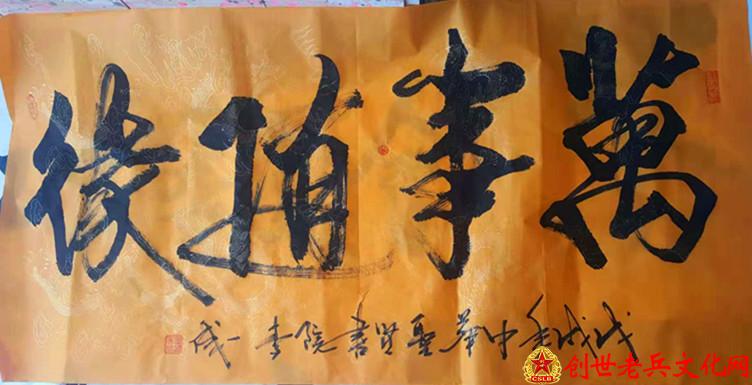 萬事随缘
戊戌年中華聖贤書院李一成
创世老兵文化网
CSLB